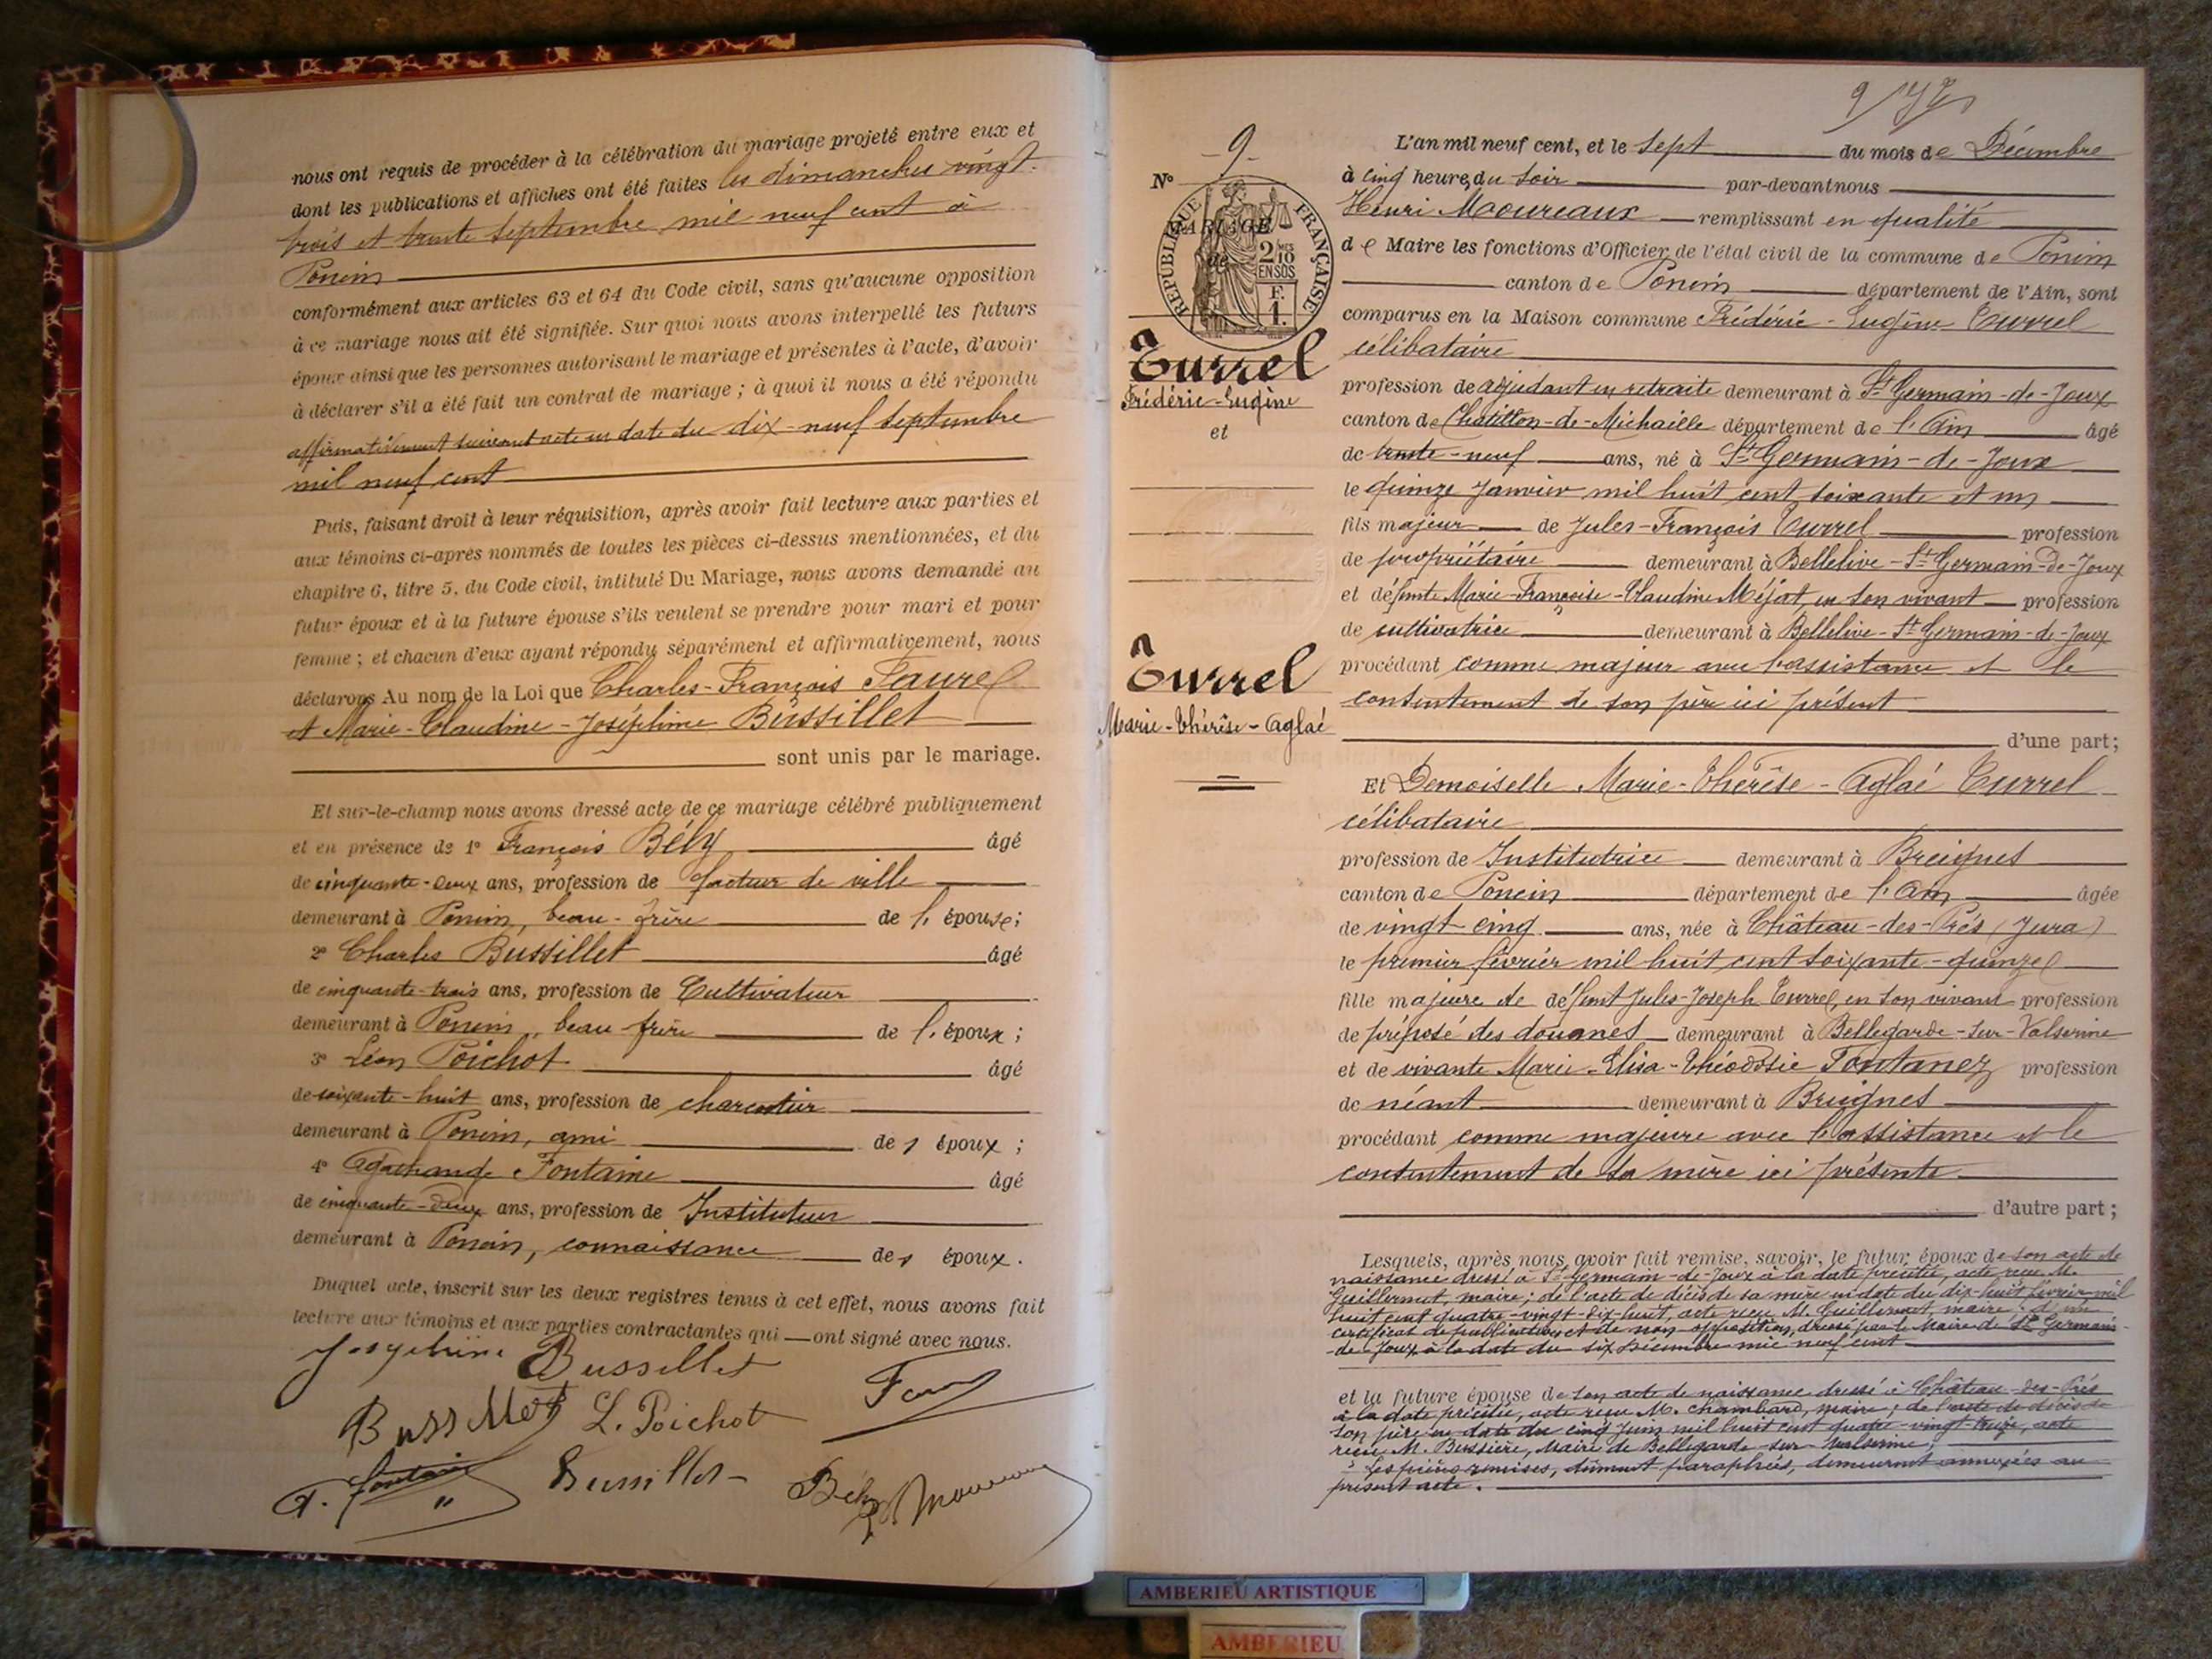 nous ont requis de procéder à la célébration du mariage projeté entre eux et
dont les publications et affiches ont été faites les dimanches vingt-
trois et trente Septembre mil neuf cent à
Poncin
conformément aux articles 63 et 64 du Code civil, sans qu'aucune opposition
à ce mariage nous ait été signifiée. Sur quoi nous avons interpellé les futurs
époux ainsi que les personnes autorisant le mariage et présentes à l'acte, d'avoir
à déclarer s'il a été fait un contrat de mariage ; à quoi il nous a été répondu
affirmativement suivant acte en date du dix-neuf Septembre
mil neuf cent
Puis, faisant droit à leur réquisition, après avoir fait lecture aux parties et
aux témoins ci-après nommés de toutes les pièces ci-dessus mentionnées, et du
chapitre 6, titre 5, du Code civil, intitulé Du Mariage, nous avons demandé au
futur époux et à la future épouse s'ils veulent se prendre pour mari et pour
femme ; et chacun d'eux ayant répondu séparément et affirmativement, nous
déclarons Au nom de la Loi que Charles-François Faurel
et Marie-Claudine-Joséphine Bussillet
sont unis par le mariage.
Et sur-le-champ nous avons dressé acte de ce mariage célébré publiquement
et en présence de 1° François Bély âgé
de cinquante-deux ans, profession de facteur de ville
demeurant à Poncin, beau-frère de l'épouse;
2° Charles Bussillet âgé
de cinquante-trois ans, profession de Cultivateur
demeurant à Poncin, beau-frère de l'époux ;
3° Léon Poichot âgé
de soixante-huit ans, profession de
demeurant à Poncin, ami des époux ;
4° Fontaine âgé
de cinquante-deux ans, profession de Instituteur
demeurant à Poncin, connaissance des époux.
Duquel acte, inscrit sur les deux registres tenus à cet effet, nous avons fait
lecture aux témoins et aux parties contractantes qui ont signé avec nous.
Josephine Bussillet
Bussillet L. Poichot
Fontaine Bussillet Bély

9
N° 9
MARIAGE
de
RÉPUBLIQUE FRANÇAISE
2 MES 10 EN SUS
F. 1.
Turrel
Frédéric-Eugène
et
Turrel
Marie-Thérèse-Aglaé
L'an mil neuf cent, et le sept du mois de Décembre
à cinq heures du soir par-devant nous
Henri Moureaux remplissant en qualité
de Maire les fonctions d'Officier de l'état civil de la commune de Poncin
canton de Poncin département de l'Ain, sont
comparus en la Maison commune Frédéric-Eugène Turrel
célibataire
profession de adjudant en retraite demeurant à St Germain-de-Joux
canton de Chatillon-de-Michaille département de l'Ain âgé
de trente-neuf ans, né à St Germain-de-Joux
le quinze Janvier mil huit cent soixante et un
fils majeur de Jules-François Turrel profession
de propriétaire demeurant à Bellelive-St Germain-de-Joux
et défunte Marie-Françoise-Claudine Méjat, en son vivant profession
de cultivatrice demeurant à Bellelive-St Germain-de-Joux
procédant comme majeur avec l'assistance et le
consentement de son père ici présent
d'une part;
Et Demoiselle Marie-Thérèse-Aglaé Turrel
célibataire
profession de Institutrice demeurant à Breignes
canton de Poncin département de l'Ain âgée
de vingt cinq ans, née à Château-des-Prés (Jura)
le premier février mil huit cent soixante-quinze
fille majeure de défunt Jules-Joseph Turrel, en son vivant profession
de préposé des douanes demeurant à Bellegarde-sur-Valserine
et de vivante Marie-Elisa-Théodosie Fontanez profession
de néant demeurant à Breignes
procédant comme majeure avec l'assistance et le
consentement de sa mère ici présente
d'autre part ;
Lesquels, après nous avoir fait remise, savoir, le futur époux de son acte de
naissance dressé à St Germain-de-Joux à la date précitée, acte reçu M.
Guillermet, maire ; de l'acte de décès de sa mère en date du dix-huit février mil
huit cent quatre-vingt-dix-huit, acte reçu M. Guillermet, maire ; d'un
certificat de publication et de non opposition, dressé par le Maire de St Germain-
-de-Joux à la date du six Décembre mil neuf cent
et la future épouse de son acte de naissance dressé à Château-des-Prés
à la date précitée, acte reçu M. Chambard, maire ; de l'acte de décès de
son père en date du cinq Juin mil huit cent quatre-vingt-treize, acte
reçu M. Bussière, Maire de Bellegarde-sur-Valserine ;
Les pièces remises, dûment paraphées, demeurent annexées au
présent acte.
AMBERIEU ARTISTIQUE
AMBERIEU